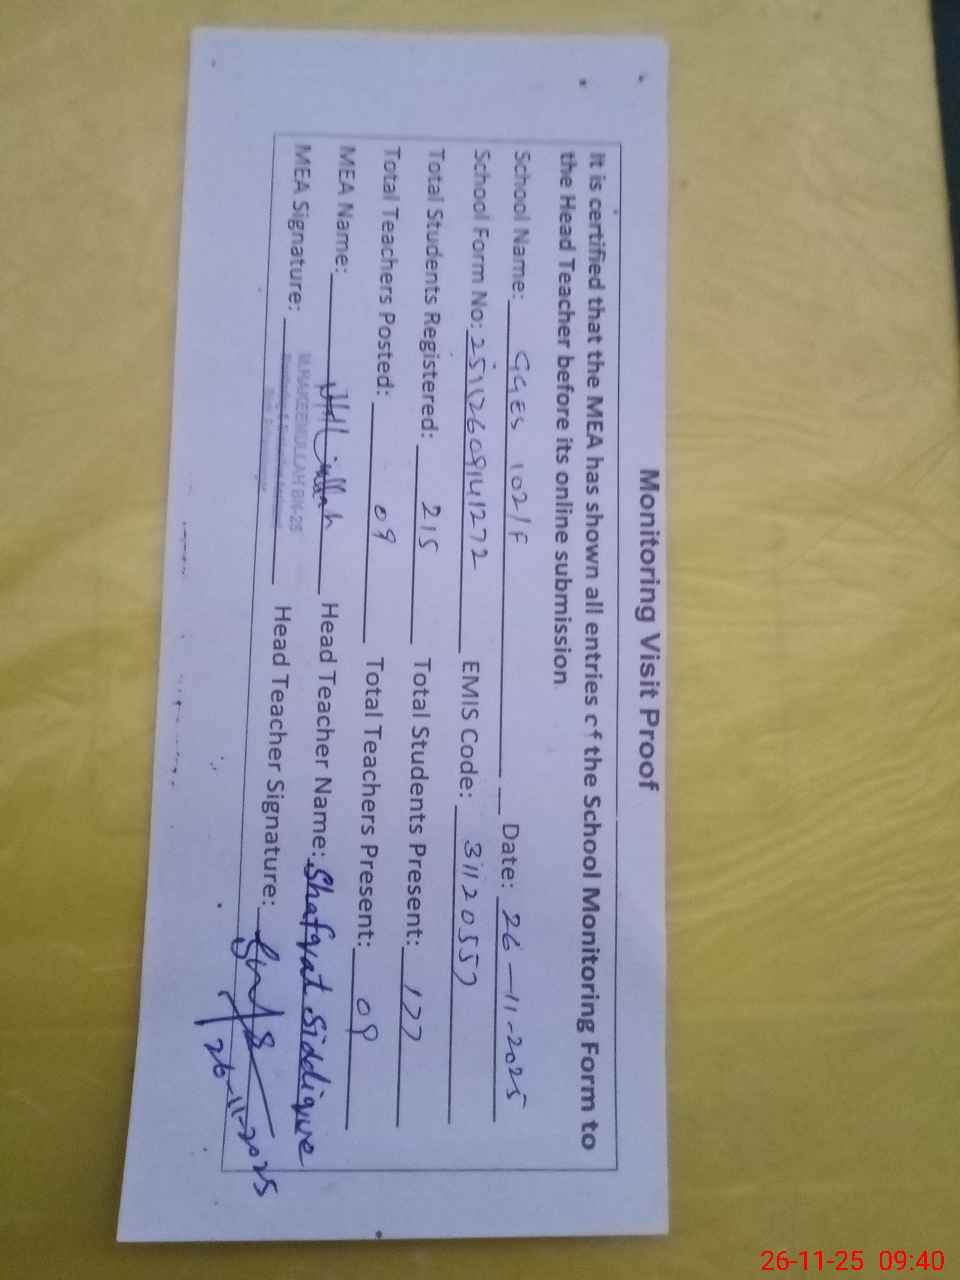 Monitoring Visit Proof
It is certified that the MEA has shown all entries of the School Monitoring Form to
the Head Teacher before its online submission.
School Name: GGES 102/F Date: 26-11-2025
School Form No: 25112609141272 EMIS Code: 31120557
Total Students Registered: 215 Total Students Present: 177
Total Teachers Posted: 09 Total Teachers Present: 09
MEA Name: Head Teacher Name: Shafqat Siddique
MEA Signature: Head Teacher Signature:
26-11-2025
26-11-25 09:40